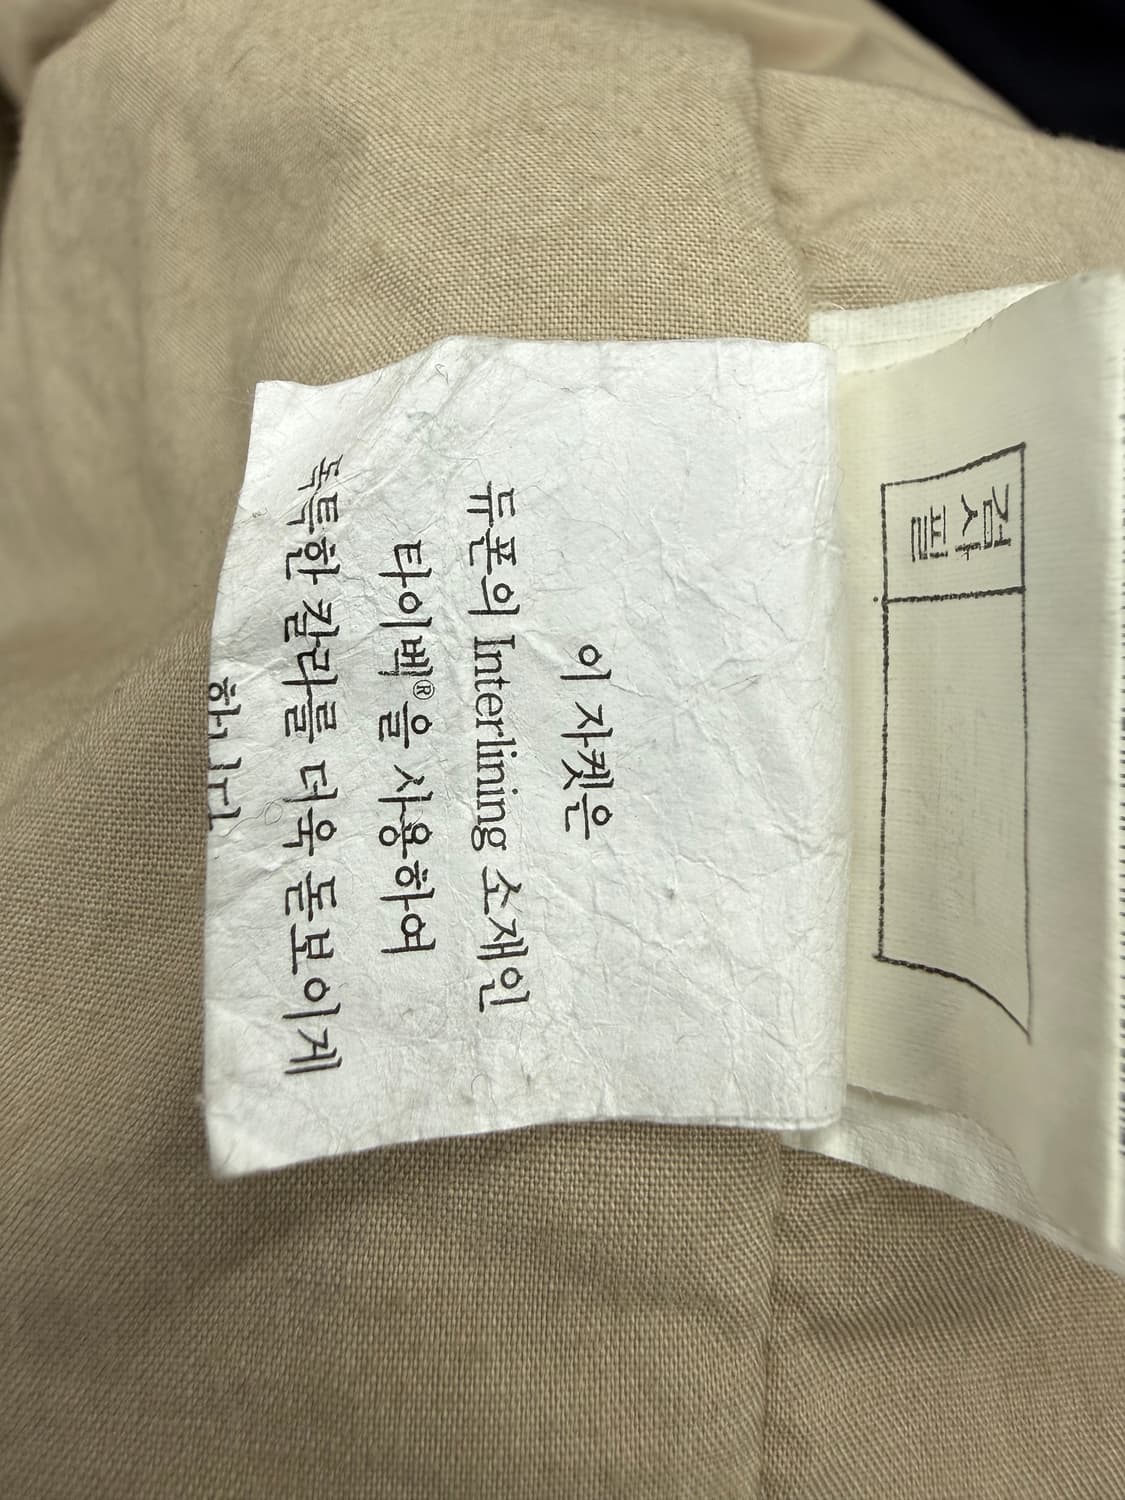 검사
필
이 자켓은
듀폰의 Interlining 소재인
타이벡®을 사용하여
독특한 칼라를 더욱 돋보이게
합니다